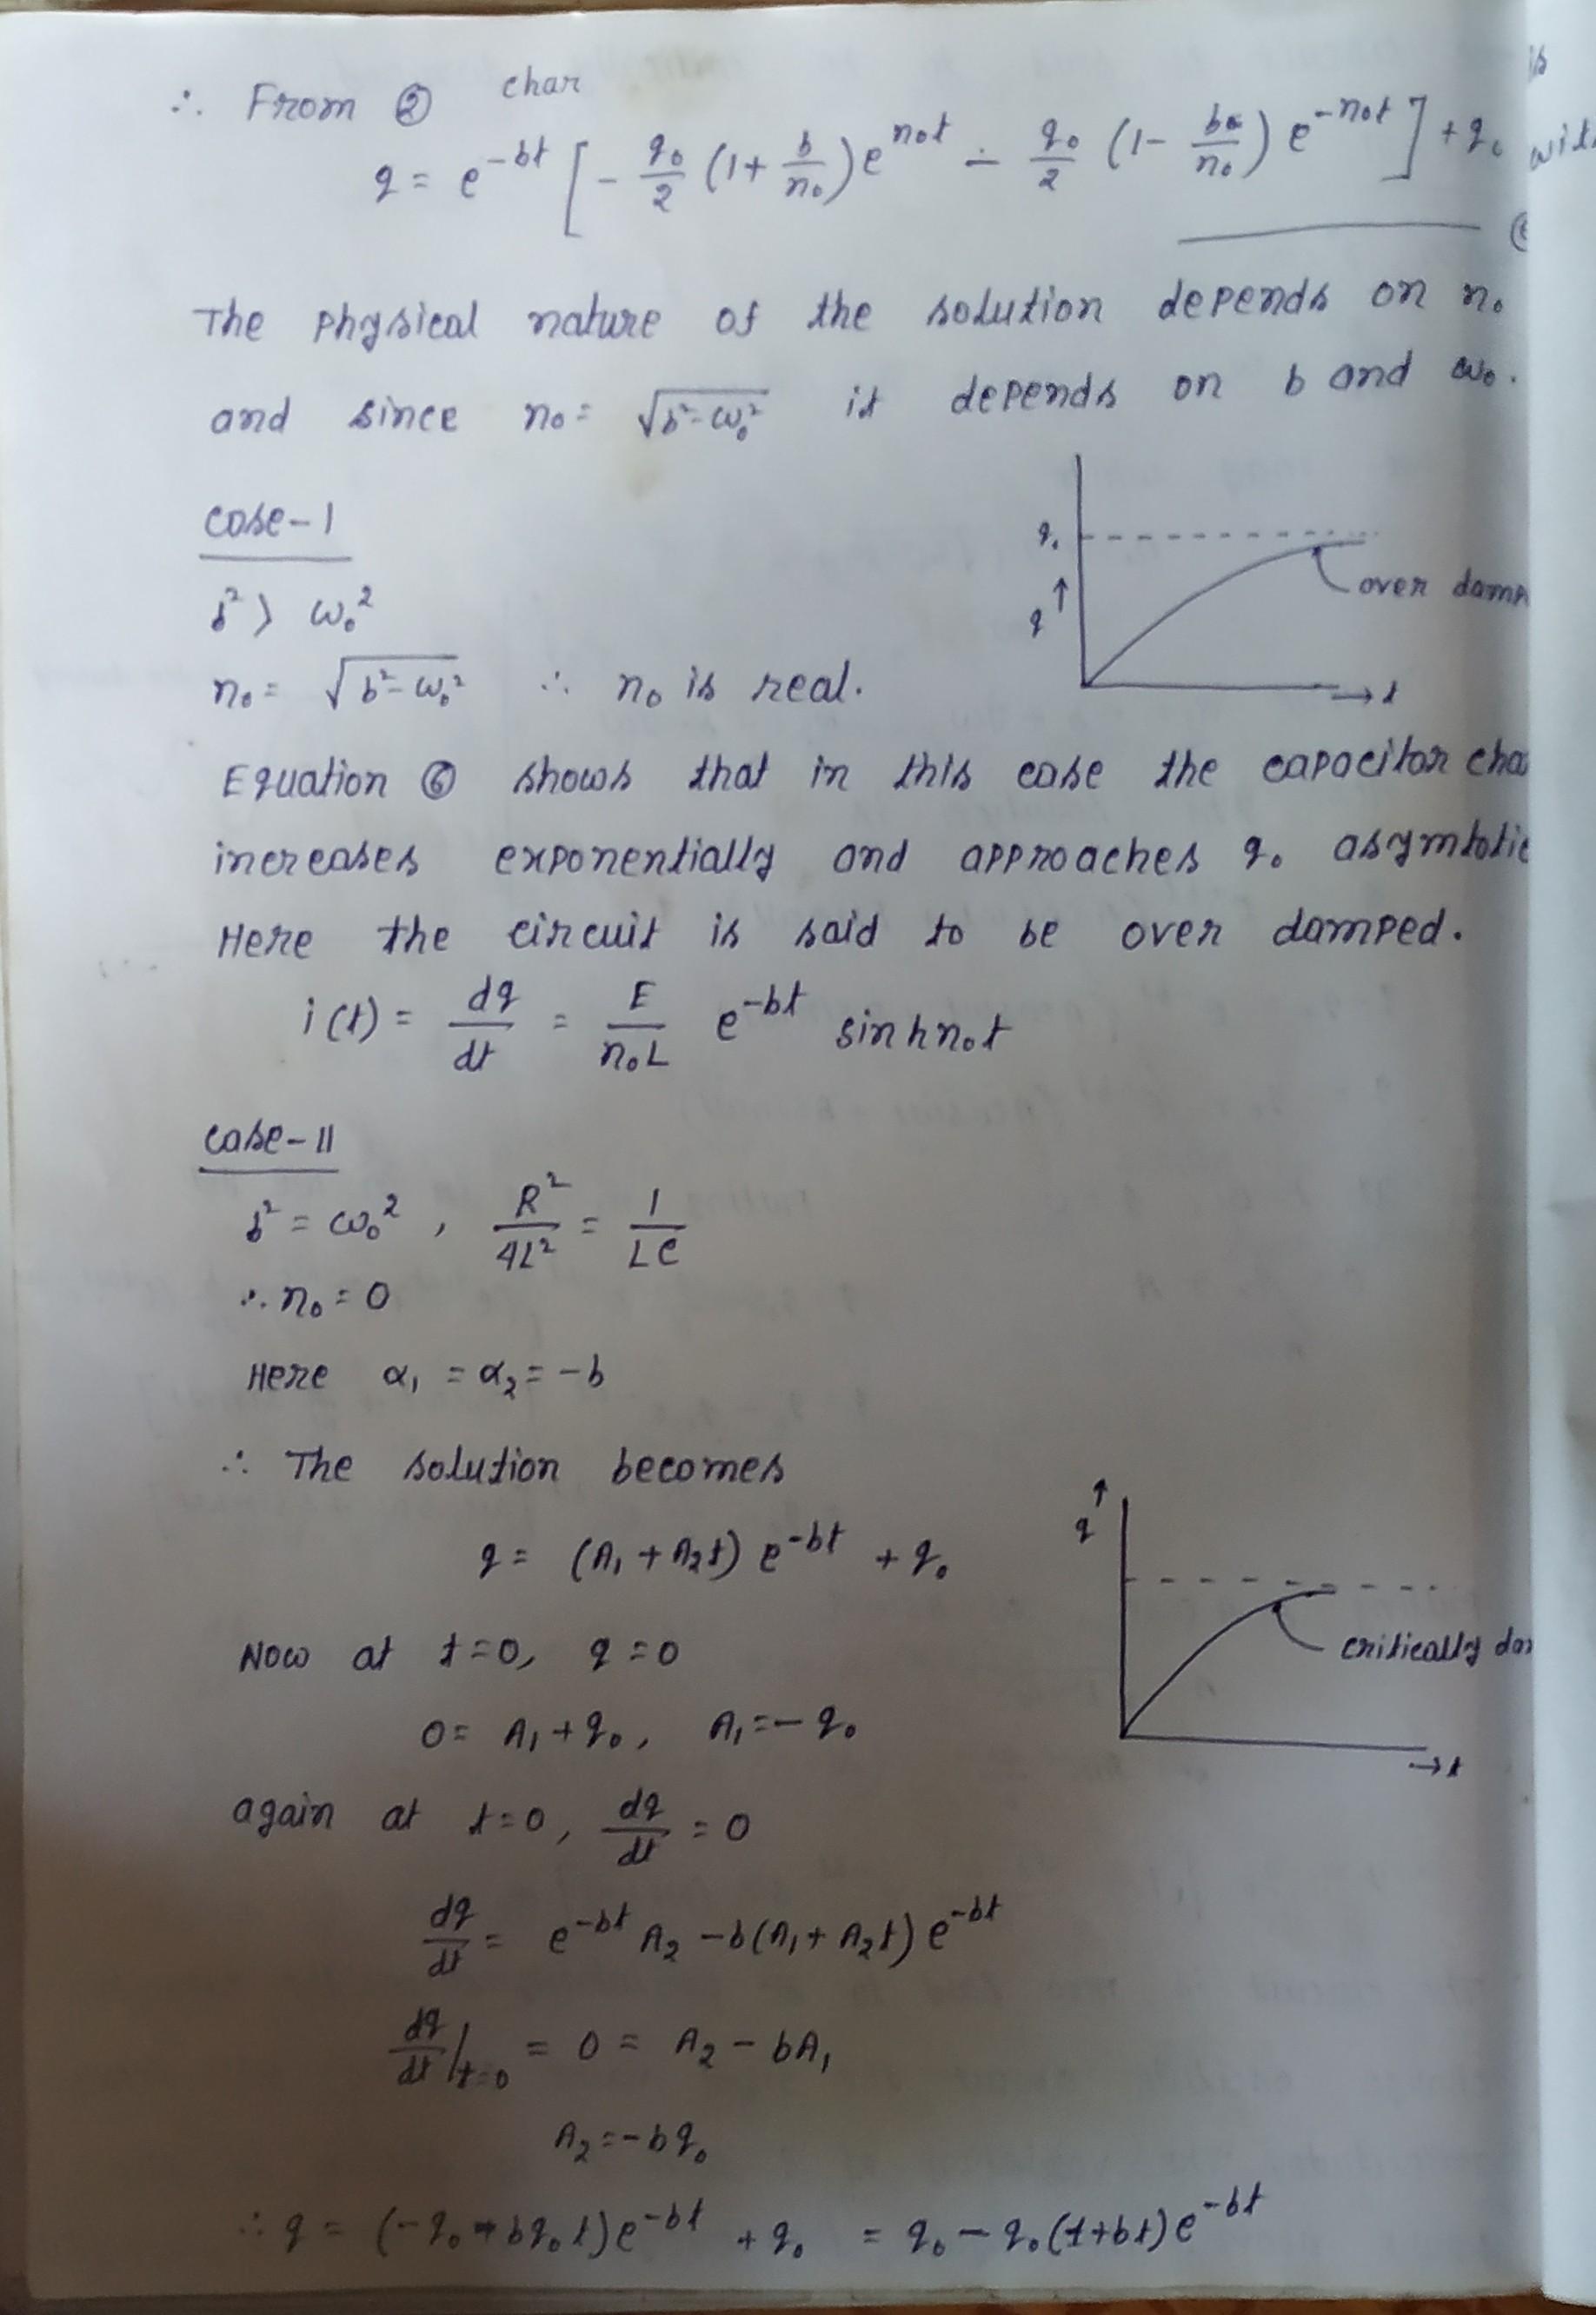 ∴ From ② char
q = e^{-bt} [ - q₀/2 (1 + b/n₀) e^{n₀t} - q₀/2 (1 - b/n₀) e^{-n₀t} ] + q₀
The physical nature of the solution depends on n₀
and since n₀ = √(b² - ω₀²) it depends on b and ω₀.
case-I
b² > ω₀²
n₀ = √(b² - ω₀²) ∴ n₀ is real.
q₀
q ↑
over damp
→ t
Equation ⑥ shows that in this case the capacitor cha
increases exponentially and approaches q₀ asymtotic
Here the circuit is said to be over damped.
i(t) = dq/dt = E/(n₀L) e^{-bt} sinh n₀t
case-II
b² = ω₀², R²/4L² = 1/LC
∴ n₀ = 0
Here α₁ = α₂ = -b
∴ The solution becomes
q = (A₁ + A₂t) e^{-bt} + q₀
q ↑
critically da
→ t
Now at t=0, q=0
0 = A₁ + q₀, A₁ = - q₀
again at t=0, dq/dt = 0
dq/dt = e^{-bt} A₂ - b(A₁ + A₂t) e^{-bt}
dq/dt |t=0 = 0 = A₂ - bA₁
A₂ = -bq₀
∴ q = (-q₀ - bq₀t) e^{-bt} + q₀ = q₀ - q₀(1+bt) e^{-bt}